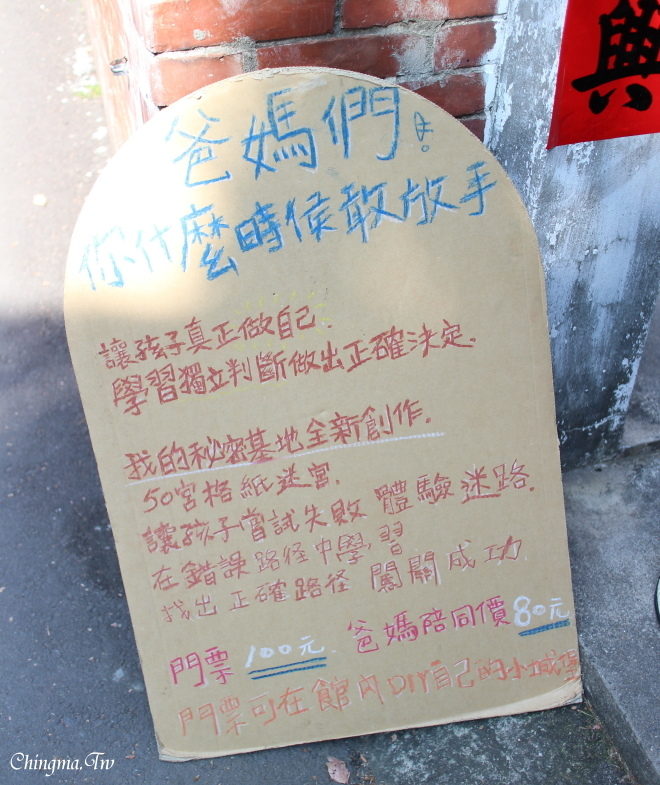 興
爸媽們!
你什麼時侯敢放手
讓孩子真正做自己.
學習獨立判斷做出正確決定.
我的秘密基地全新創作.
50宮格紙迷宮.
讓孩子嘗試失敗 體驗迷路.
在錯誤路徑中學習
找出正確路徑 闖關成功.
門票 100元. 爸媽陪同價80元
門票可在館內DIY自己的小城堡
Chingma.Tw